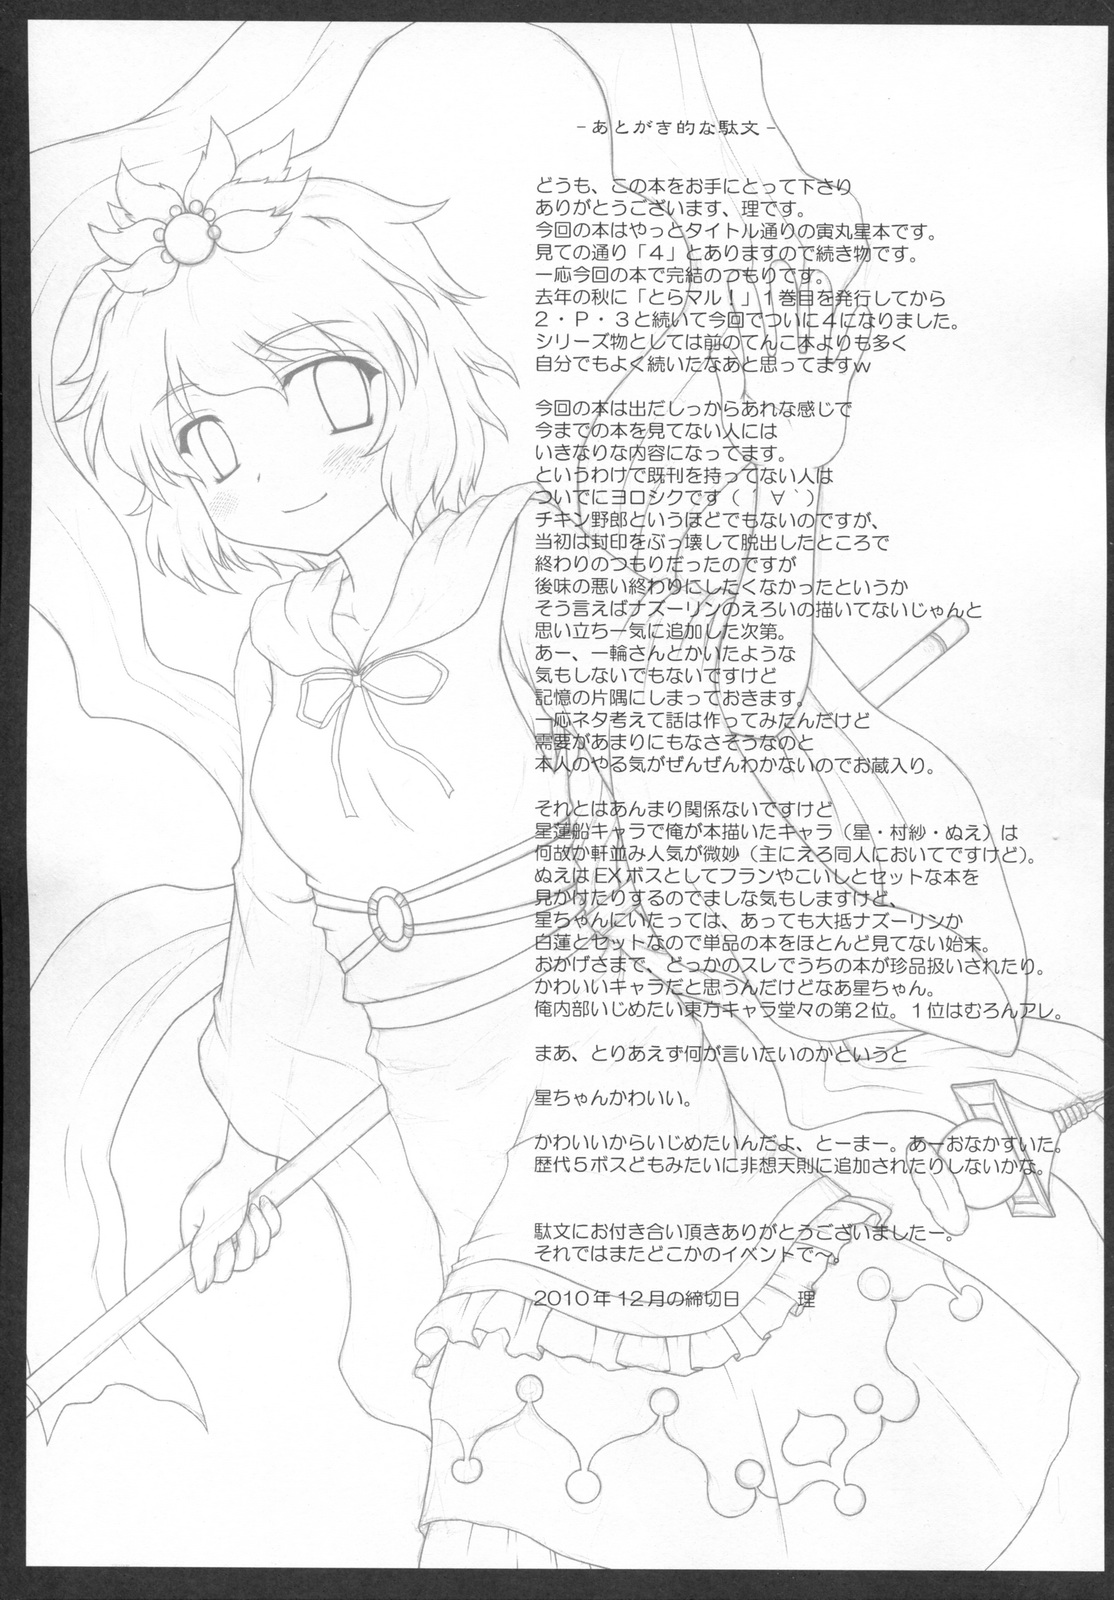 -あとがき的な駄文-
どうも、この本をお手にとって下さり
ありがとうございます、理です。
今回の本はやっとタイトル通りの寅丸星本です。
見ての通り「4」とありますので続き物です。
一応今回の本で完結のつもりです。
去年の秋に「とらマル！」1巻目を発行してから
2・P・3と続いて今回でついに4になりました。
シリーズ物としては前のてんこ本よりも多く
自分でもよく続いたなあと思ってますｗ
今回の本は出だしっからあれな感じで
今までの本を見てない人には
いきなりな内容になってます。
というわけで既刊を持ってない人は
ついでにヨロシクです（´∀｀）
チキン野郎というほどでもないのですが、
当初は封印をぶっ壊して脱出したところで
終わりのつもりだったのですが
後味の悪い終わりにしたくなかったというか
そう言えばナズーリンのえろいの描いてないじゃんと
思い立ち一気に追加した次第。
あー、一輪さんとかいたような
気もしないでもないですけど
記憶の片隅にしまっておきます。
一応ネタ考えて話は作ってみたんだけど
需要があまりにもなさそうなのと
本人のやる気がぜんぜんわかないのでお蔵入り。
それとはあんまり関係ないですけど
星蓮船キャラで俺が本描いたキャラ（星・村紗・ぬえ）は
何故か軒並み人気が微妙（主にえろ同人においてですけど）。
ぬえはEXボスとしてフランやこいしとセットな本を
見かけたりするのでましな気もしますけど、
星ちゃんにいたっては、あっても大抵ナズーリンか
白蓮とセットなので単品の本をほとんど見てない始末。
おかげさまで、どっかのスレでうちの本が珍品扱いされたり。
かわいいキャラだと思うんだけどなあ星ちゃん。
俺内部いじめたい東方キャラ堂々の第2位。1位はむろんアレ。
まあ、とりあえず何が言いたいのかというと
星ちゃんかわいい。
かわいいからいじめたいんだよ、とーまー。あーおなかすいた。
歴代5ボスどもみたいに非想天則に追加されたりしないかな。
駄文にお付き合い頂きありがとうございましたー。
それではまたどこかのイベントで～。
2010年12月の締切日　　理